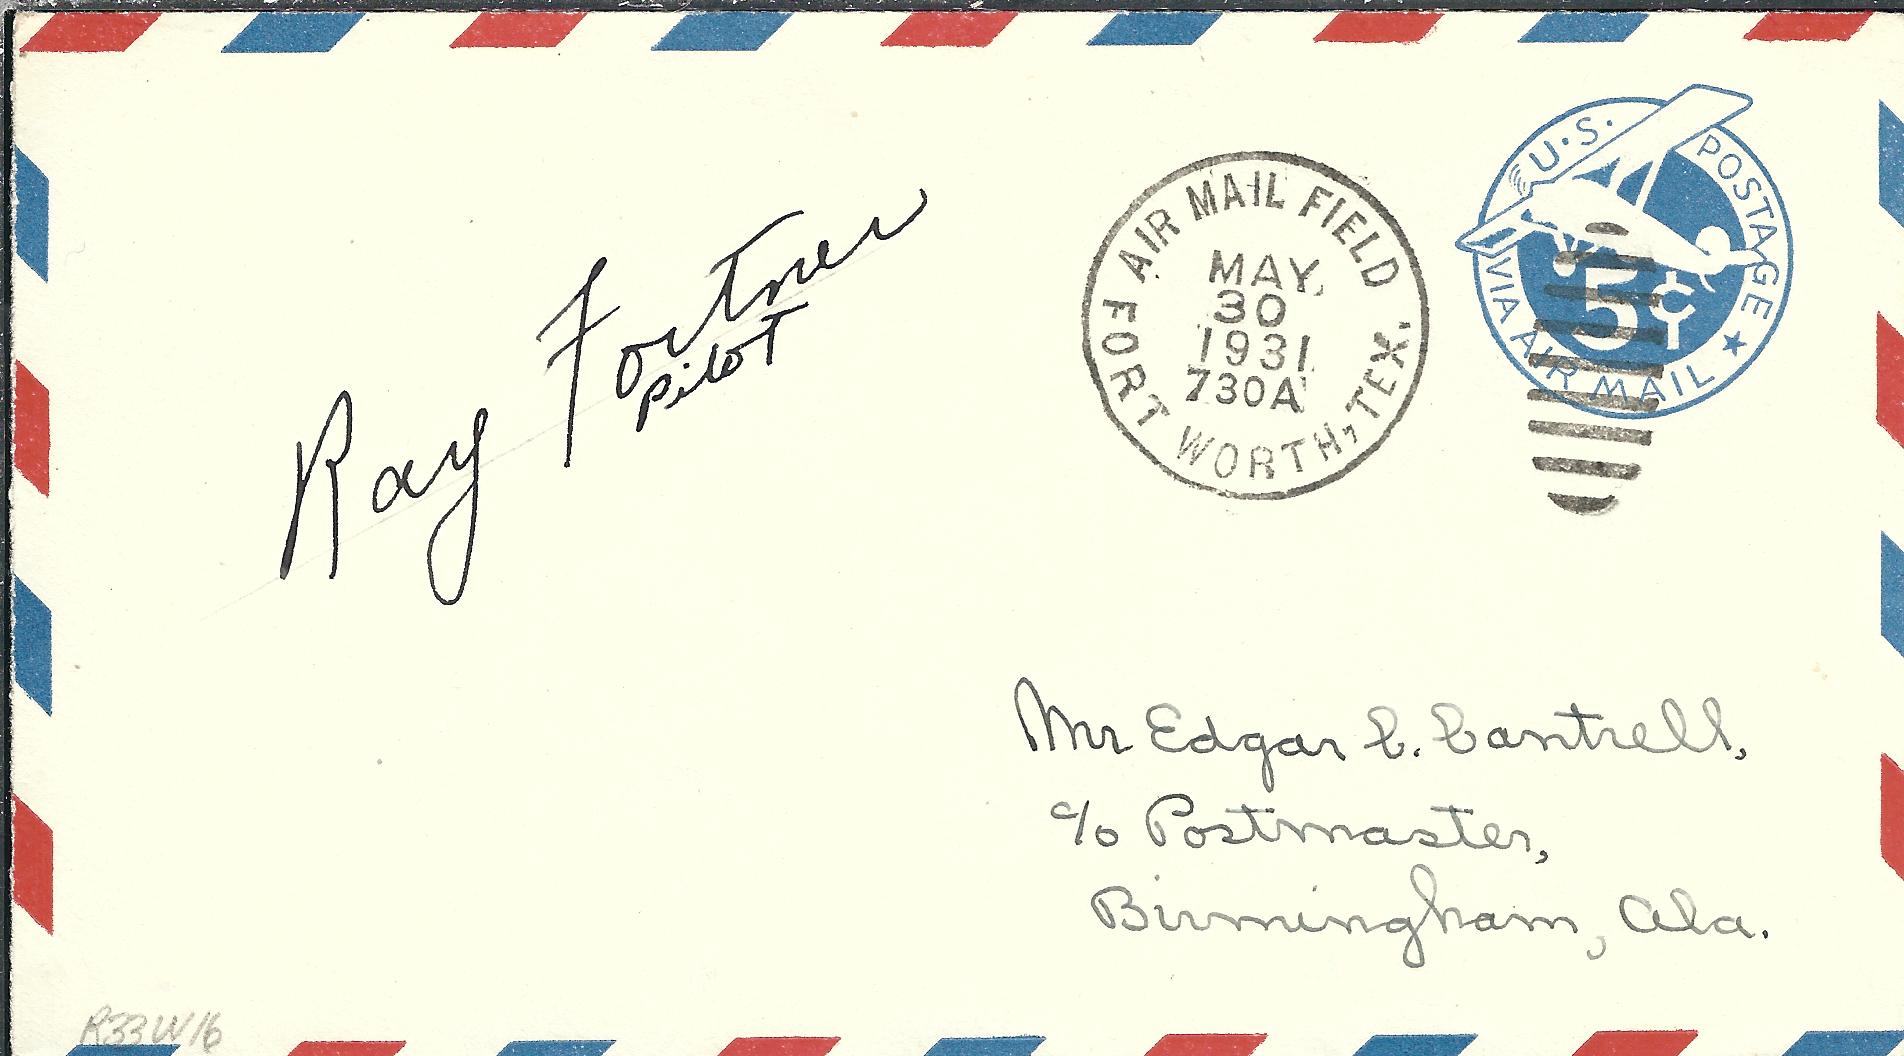 U.S. POSTAGE
5¢
VIA AIR MAIL
AIR MAIL FIELD
MAY
30
1931
730A
FORT WORTH, TEX.
Ray Fortner
Pilot
Mr Edgar C. Cantrell,
c/o Postmaster,
Birmingham, Ala.
R33W16